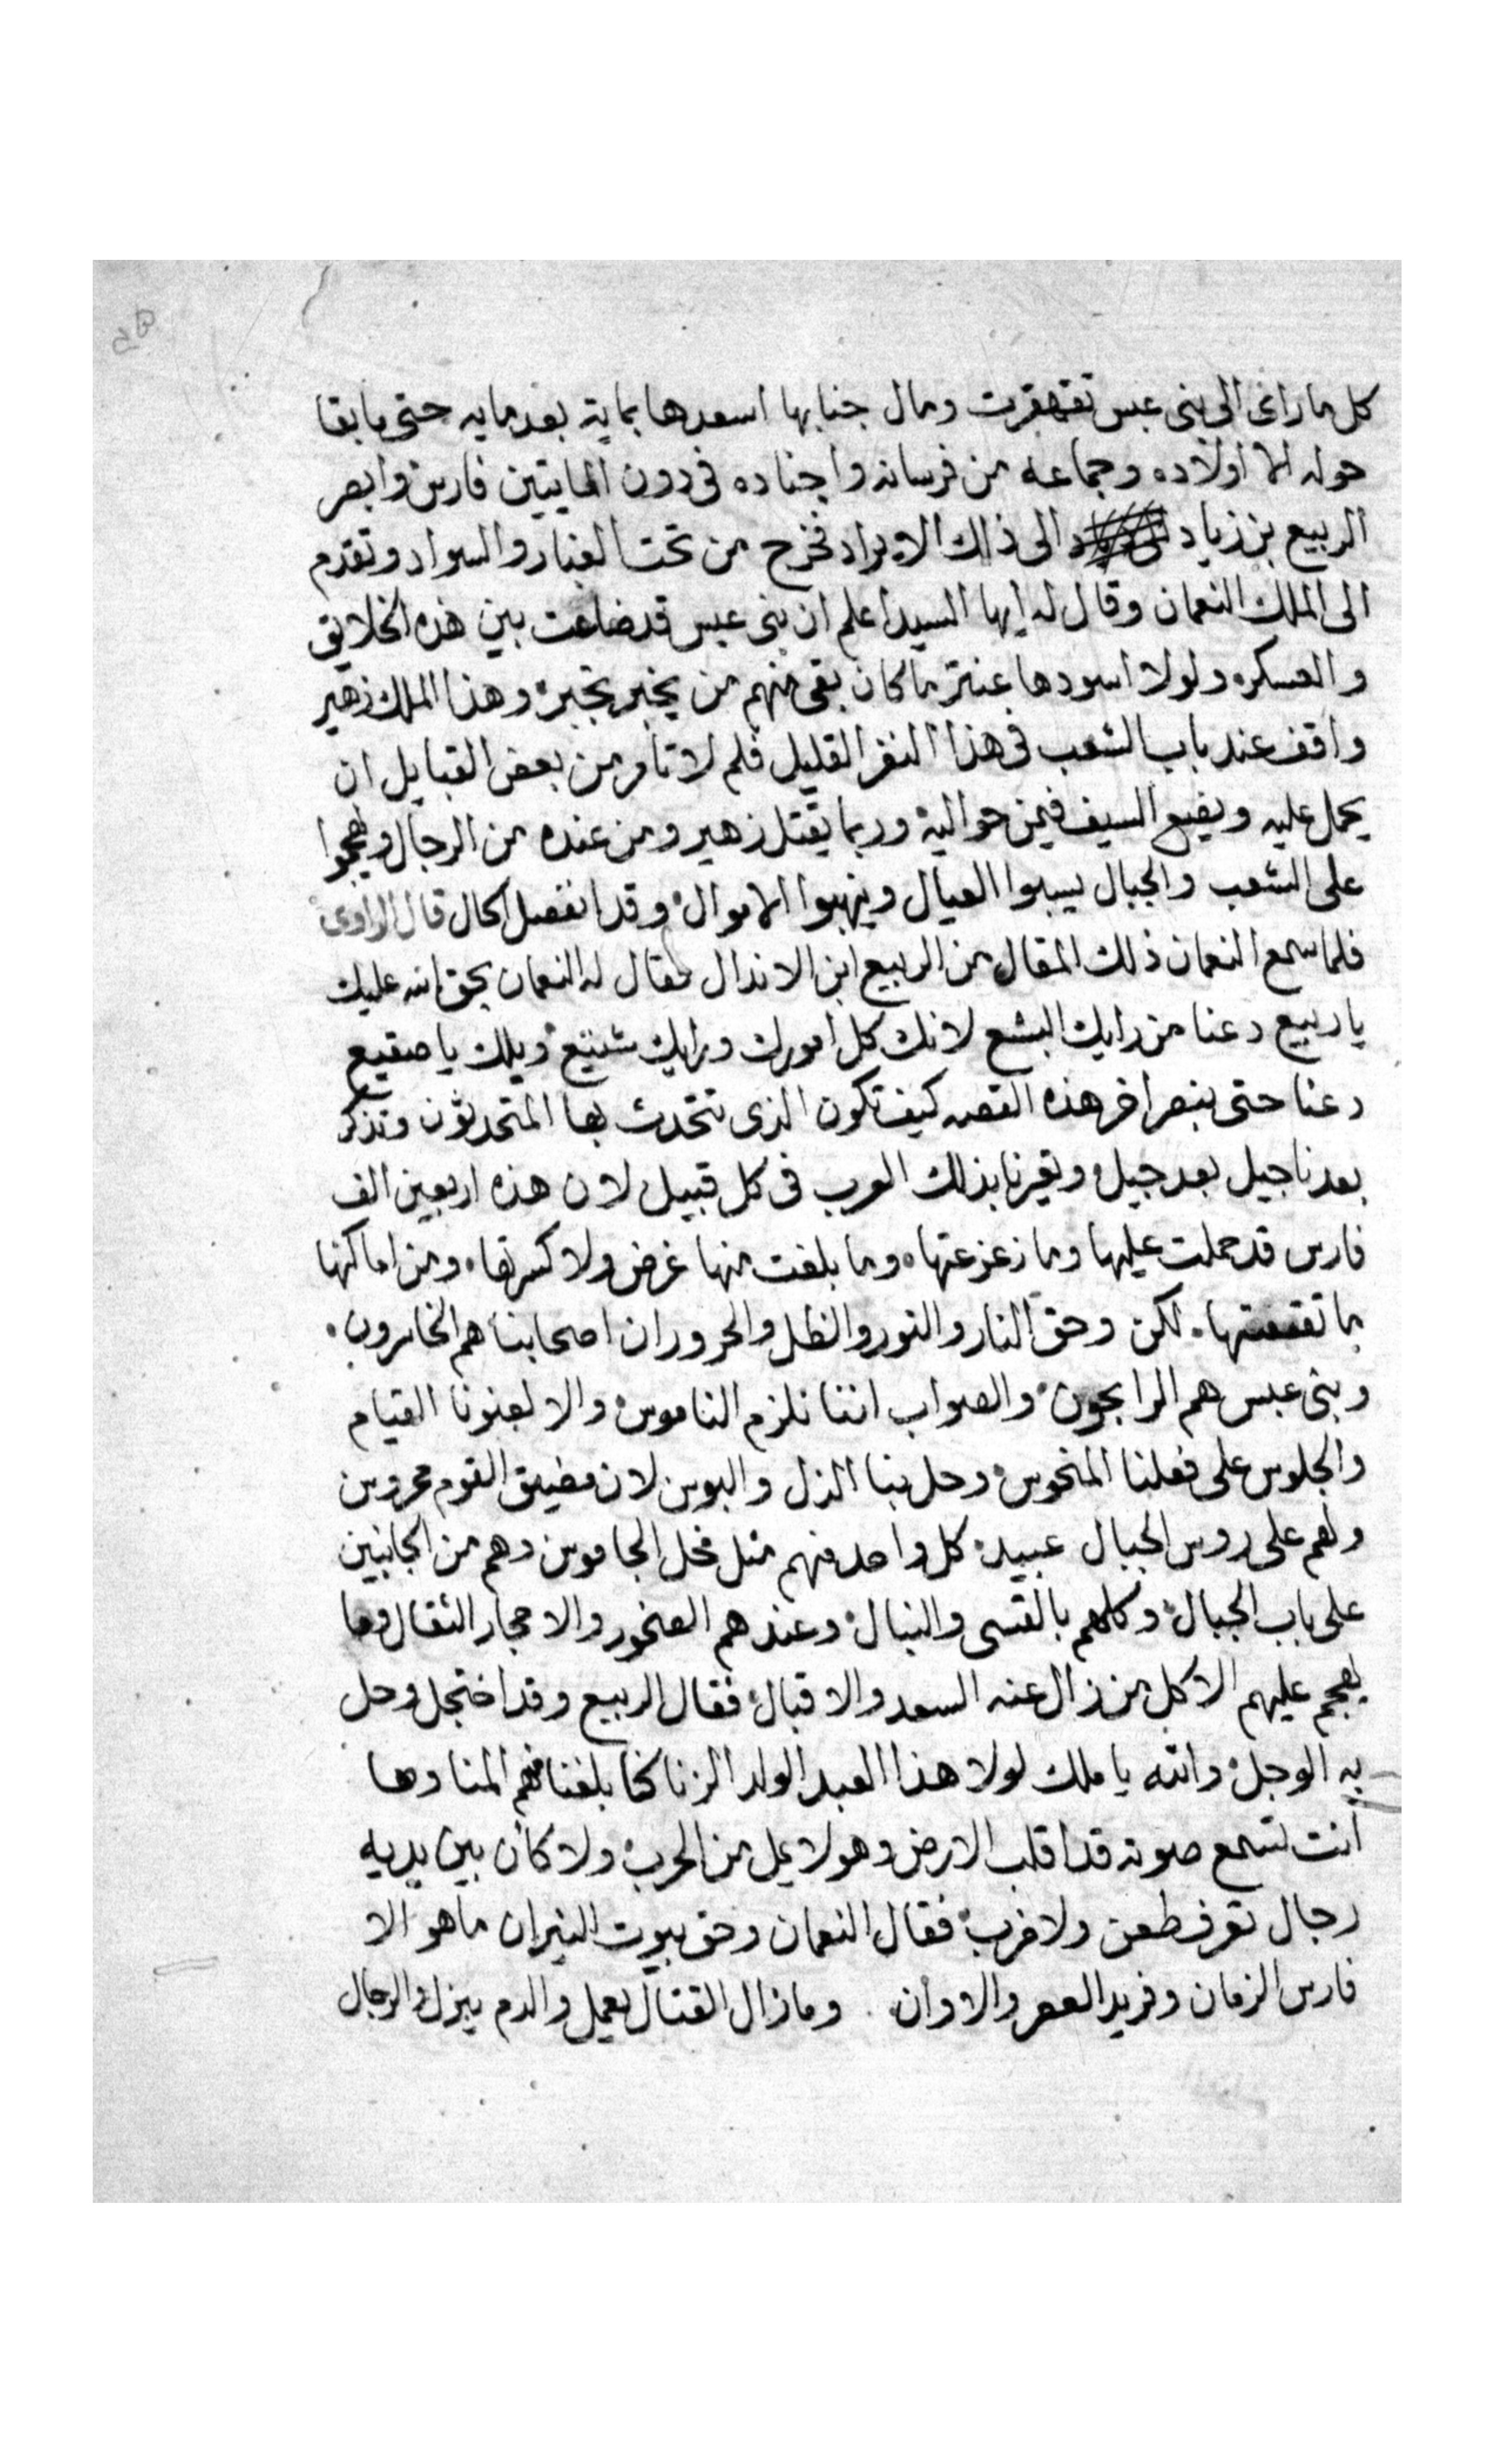 كل ما راى الى بنى عبس تقهقرت ومال جنابها اسعدها بماية بعد مايه حتى ما بقا
حوله الا اولاده وجماعه من فرسانه واجناده فى دون المايتين فارس وابصر
الربيع بن زياد الى ذلك الايراد فخرج من تحت الغبار والسواد وتقدم
الى الملك النعمان وقال له ايها السيد اعلم ان بنى عبس قد ضاعت بين هذه الخلايق
والعسكره ولولا اسودها عنتر ما كان بقى منهم من يخبر بخبره وهذا الملك زهير
واقف عند باب الشعب فى هذا النفر القليل فلم لا تامر من بعض القبايل ان
يحمل عليه ويضع السيف فيمن حواليه وربما يقتل زهير ومن عنده من الرجال ويهجموا
على الشعب والجبال يسبوا العيال وينهبوا الاموال وقد انفصل الحال قال الراوى
فلما سمع النعمان ذلك المقال من الربيع ابن الاندال فقال له النعمان بحق الله عليك
يا ربيع دعنا من رايك البشع لانك كل امورك ورايك شنيع ويلك يا صقيع
دعنا حتى نبصر اخر هذه القصه كيف تكون الذى تتحدث بها المتحدثون وتذكر
بعدنا جيل بعد جيل وتعيرنا بذلك العرب فى كل قبيل لان هذه اربعين الف
فارس قد حملت عليها وما زعزعتها وما بلغت منها غرض ولا كسرتها ومن اماكنها
ما تقعقعتها لكن وحق النار والنور والظل والحرور ان اصحابنا هم الخاسرون
وبنى عبس هم الرابحون والصواب اننا نلزم الناموس والا لعنونا القيام
والجلوس على فعلنا المنحوس وحل بنا الذل والبوس لان مضيق القوم محروس
ولهم على روس الجبال عبيد كل واحد منهم مثل فحل الجاموس وهم من الجانبين
على باب الجبال وكلهم بالقسى والنبال وعندهم الصخور والاحجار الثقال وما
يهجم عليهم الا كل من زال عنه السعد والاقبال فقال الربيع وقد اختجل وحل
به الوجل والله يا ملك لولا هذا العبد الولد الزنا كنا بلغنا منهم المنا وها
انت تسمع صوته قد اقلب الارض وهو لا يمل من الحرب ولا كأن بين يديه
رجال تعرف طعن ولا ضرب فقال النعمان وحق بيوت النيران ما هو الا
فارس الزمان وفريد العصر والاوان وما زال القتال يعمل والدم يبزل والرجال